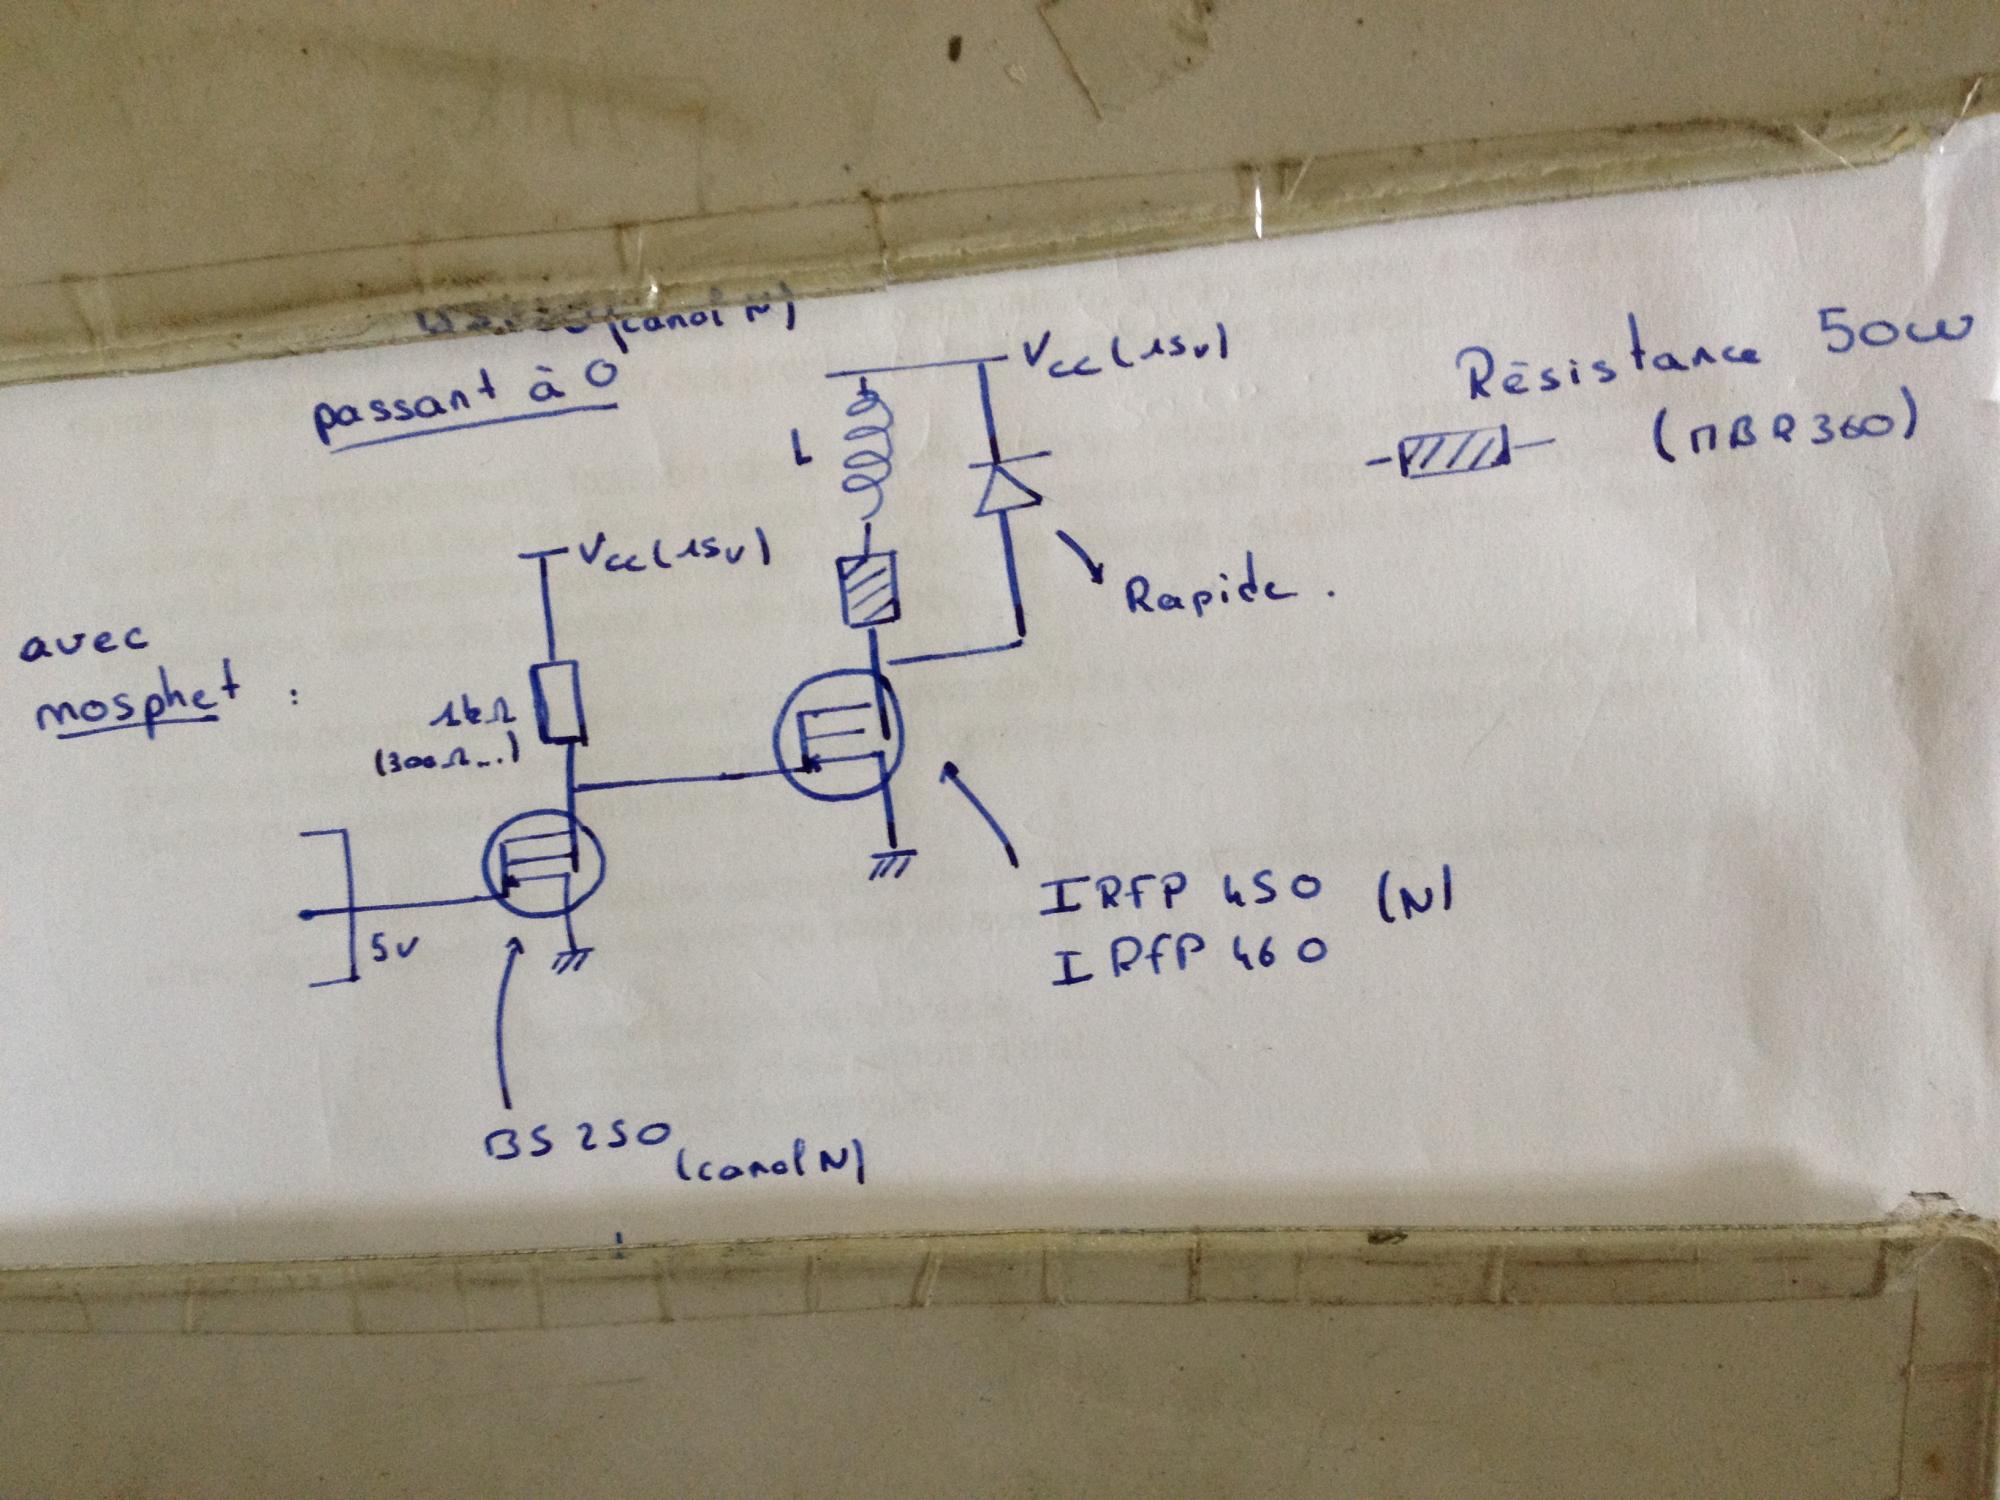 (canal N)
passant à 0
Vcc (15v)
Résistance 50w
(MBR360)
L
Vcc (15v)
Rapide.
avec
mosphet :
1kΩ
(300Ω...)
5v
IRFP 450 (N)
IRFP 460
BS 250
(canal N)